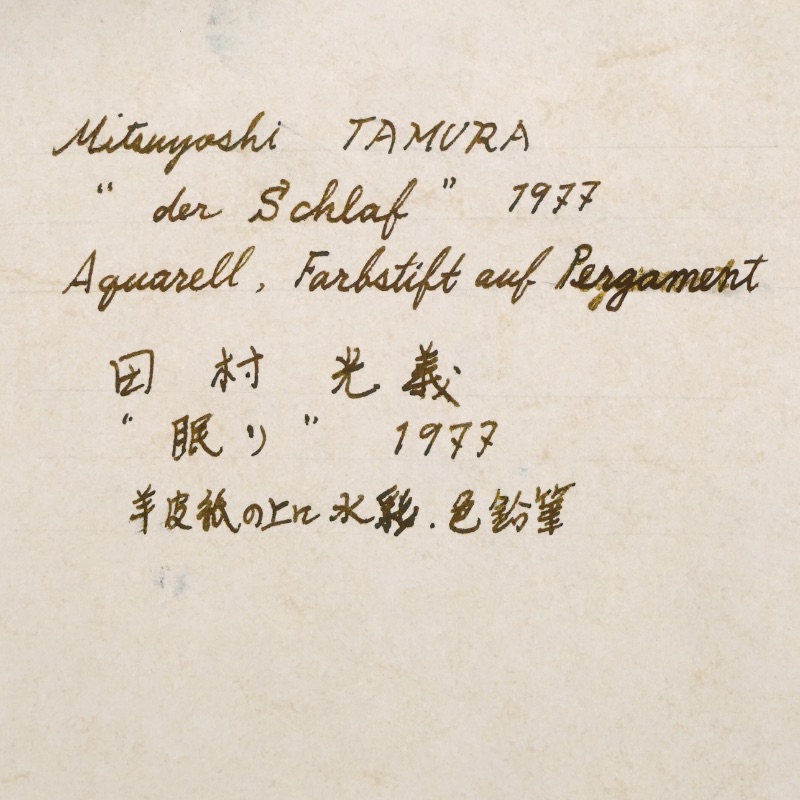 Mitsuyoshi TAMURA
“ der Schlaf ” 1977
Aquarell, Farbstift auf Pergament
田村 光義
“ 眠り ” 1977
羊皮紙の上に水彩.色鉛筆